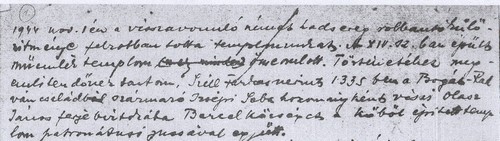 1944 nov. 1 én a visszavonuló német hadsereg robbantó külö-
nítménye felrobbantotta templomunkat. A XIV. sz. ban épült
műemlék templom (volt) omlott. Történetéhez meg-
említendőnek tartom, Széll Farkas szerint 1335 ben a Bogát-
ván családból származó Izsépi Saba hozományként vásis Olasz
János feje birtokába Barcel községet a kőből épített temp-
lom patronátusi jussával együtt.